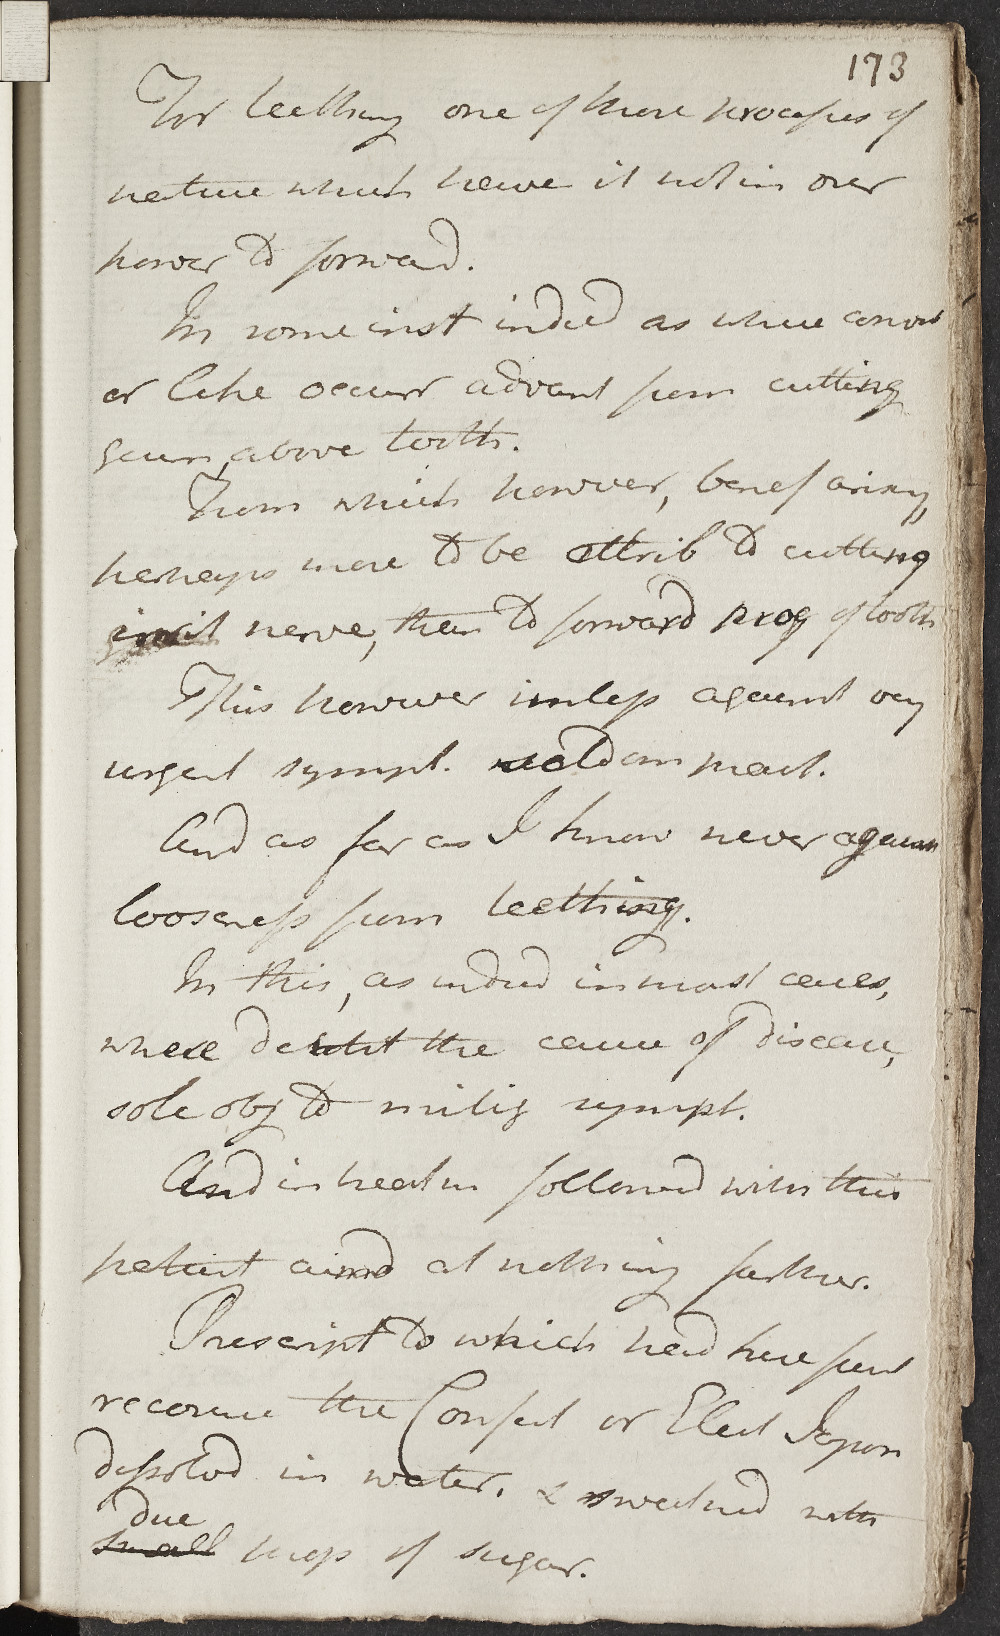 173
For teething one of those processes of
nature which have it not in our
power to forward.
In some inst indeed as where convul
or like occurr advant from cutting
gum above tooth.
From which however, benef arising,
perhaps more to be attrib to cutting
nerve, than to forward prog of tooth
This however unless against very
urgent sympt. seldom pract.
And as far as I know never against
looseness from teething.
In this, as indeed in most cases,
where the cause of disease,
sole obj to mitig sympt.
And in treatm followed with this
patient aimd at nothing farther.
Prescript to which had here first
recourse the Confect or Elect Japon
dissolvd in water. & sweetned with
due
small prop of sugar.